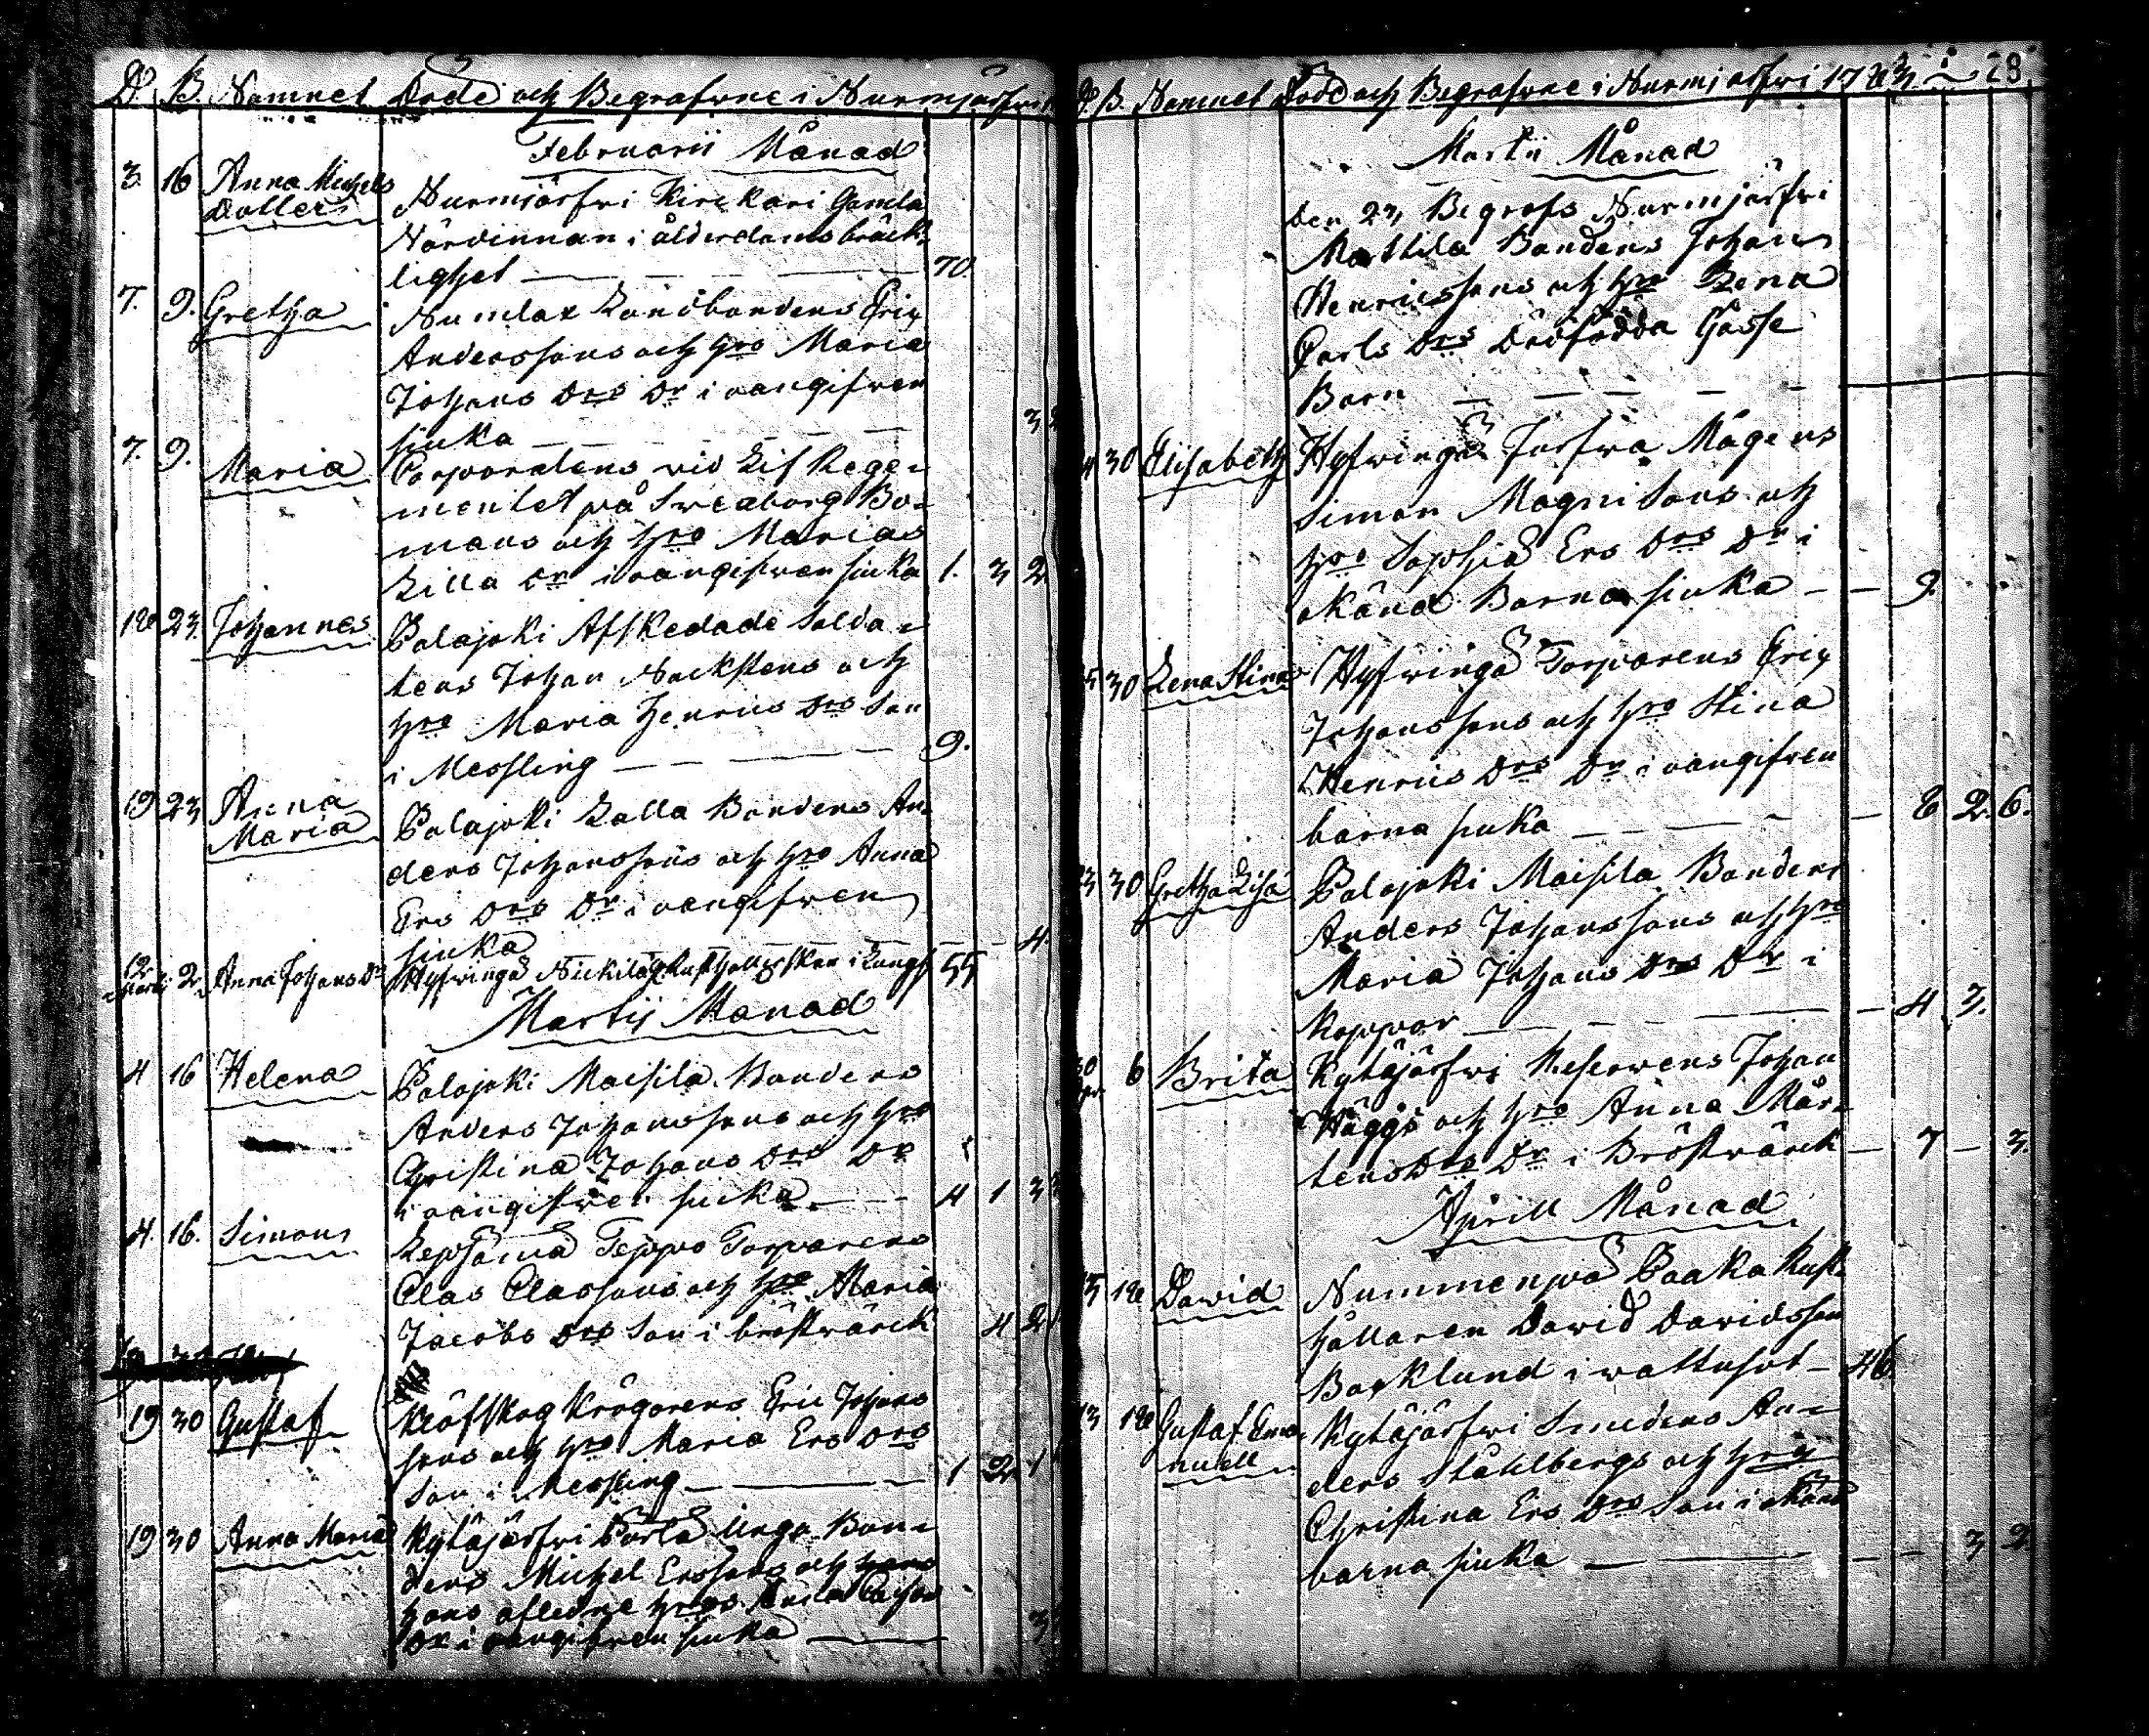 D. B. Namnet Döde och Begrafvne i Nurmjärfvi
Februarii Månad
3. 16 Anna Michels Nurmjärfvi Kirckari Gamla
Dotter Värdinnan i ålderdoms bräck-
lighet — 70
7. 9. Gretha Numlax Landbondens Eric
Anderssons och hrs Maria
Johans Drs Dr i oangifven
siuka — 3
7. 9. Maria Corporalens vid Lif Rege-
mentet på Sveaborg Bo-
mans och hrs Marias
Lilla Dr i oangifven siuka 1. 3 2
18 23 Johannes Palajoki Afskedade Solda-
tens Johan Nackstens och
hrs Maria Henrics Drs Son
i Messling — 9.
19 23 Anna Palajoki Lalla Bondens An-
Maria ders Johanssons och hrs Anna
Ers Drs Dr i oangifven
siuka — 4
12 Martii 2 Anna Johans Dr Hyfvingå Nickilä Rusthållerskan i Lungs 55
Martij Månad
4 16 Helena Palajoki Maisila Bondens
Anders Johanssons och hrs
Christina Johans Drs Dr
i oangifven siuka — 4 1 3
4. 16. Simon Lepsämä Teppo Torparens
Clas Classons och hrs Maria
Jacobs Drs Son i bröstvärck 4 2
19 30 Gustaf Klöfskog Krögarens Eric Johans
sons och hrs Maria Ers Drs
Son i Messling — 1 2 1
19 30 Anna Maria Kytäjärfvi Unga Bon-
dens Michel Erssons och hans
hans afledne hrs
Dr i oangifven siuka — 3
D. B. Namnet Död och Begrafvne i Nurmjärfvi 1783 28
Martii Månad
Den 23 Begrofs Nurmjärfvi
Marttila Bondens Johan
Henricssons och hrs Lena
Carls Drs Dödfödda Gosse
Barn —
4 30 Elisabeth Hyfvingå Jusfva Mågens
Simon Magni Sons och
hrs Sophia Ers Drs Dr i
okänd Barna siuka — 9.
30 Lena Stina Hyfvingå Torparens Eric
Johanssons och hrs Stina
Henrics Drs Dr i oangifven
barna siuka — 8 2. 6.
23 30 Gretha Lisa Palajoki Maisila Bondens
Anders Johanssons och hrs
Maria Johans Drs Dr i
Koppor — 4 3.
30 6 Brita Kytäjärfvi Reservens Johan
Häggs och hrs Anna Mår-
tens Drs Dr i Bröstvärck — 7 — 3.
Aprill Månad
13 18 David Nummenpä Paaka Rust-
hållaren David Davidsson
Backlund i vattusot — 46
13 18 Gustaf Ema- Kytäjärfvi Smedens An-
nuell ders Ståhlbergs och hrs
Christina Ers Drs Son i okänd
barna siuka — 3 2